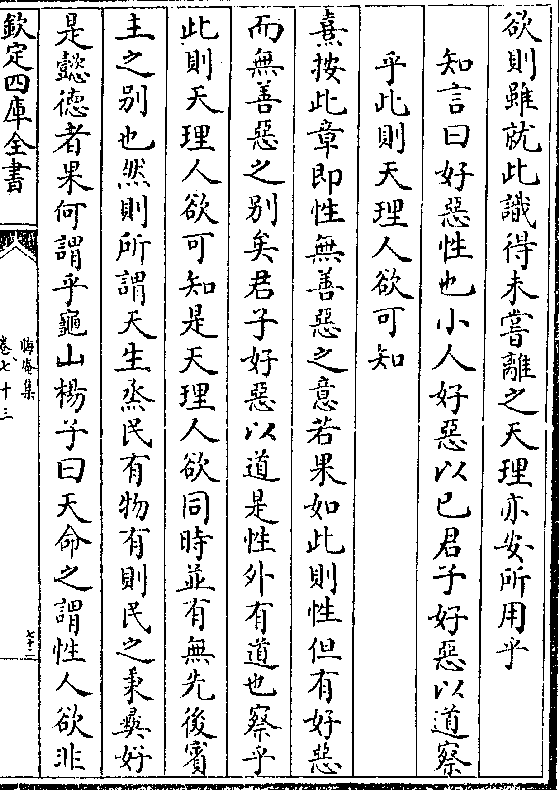 欲則雖就此識得未嘗離之天理亦安所用乎
知言曰好惡性也小人好惡以已君子好惡以道察
乎此則天理人欲可知
熹按此章即性無善惡之意若果如此則性但有好惡
而無善惡之别矣君子好惡以道是性外有道也察乎
此則天理人欲可知是天理人欲同時並有無先後賓
主之别也然則所謂天生烝民有物有則民之秉彛好
是懿德者果何謂乎龜山楊子曰天命之謂性人欲非
欽定四庫全書
晦庵集
卷七十三
七十二